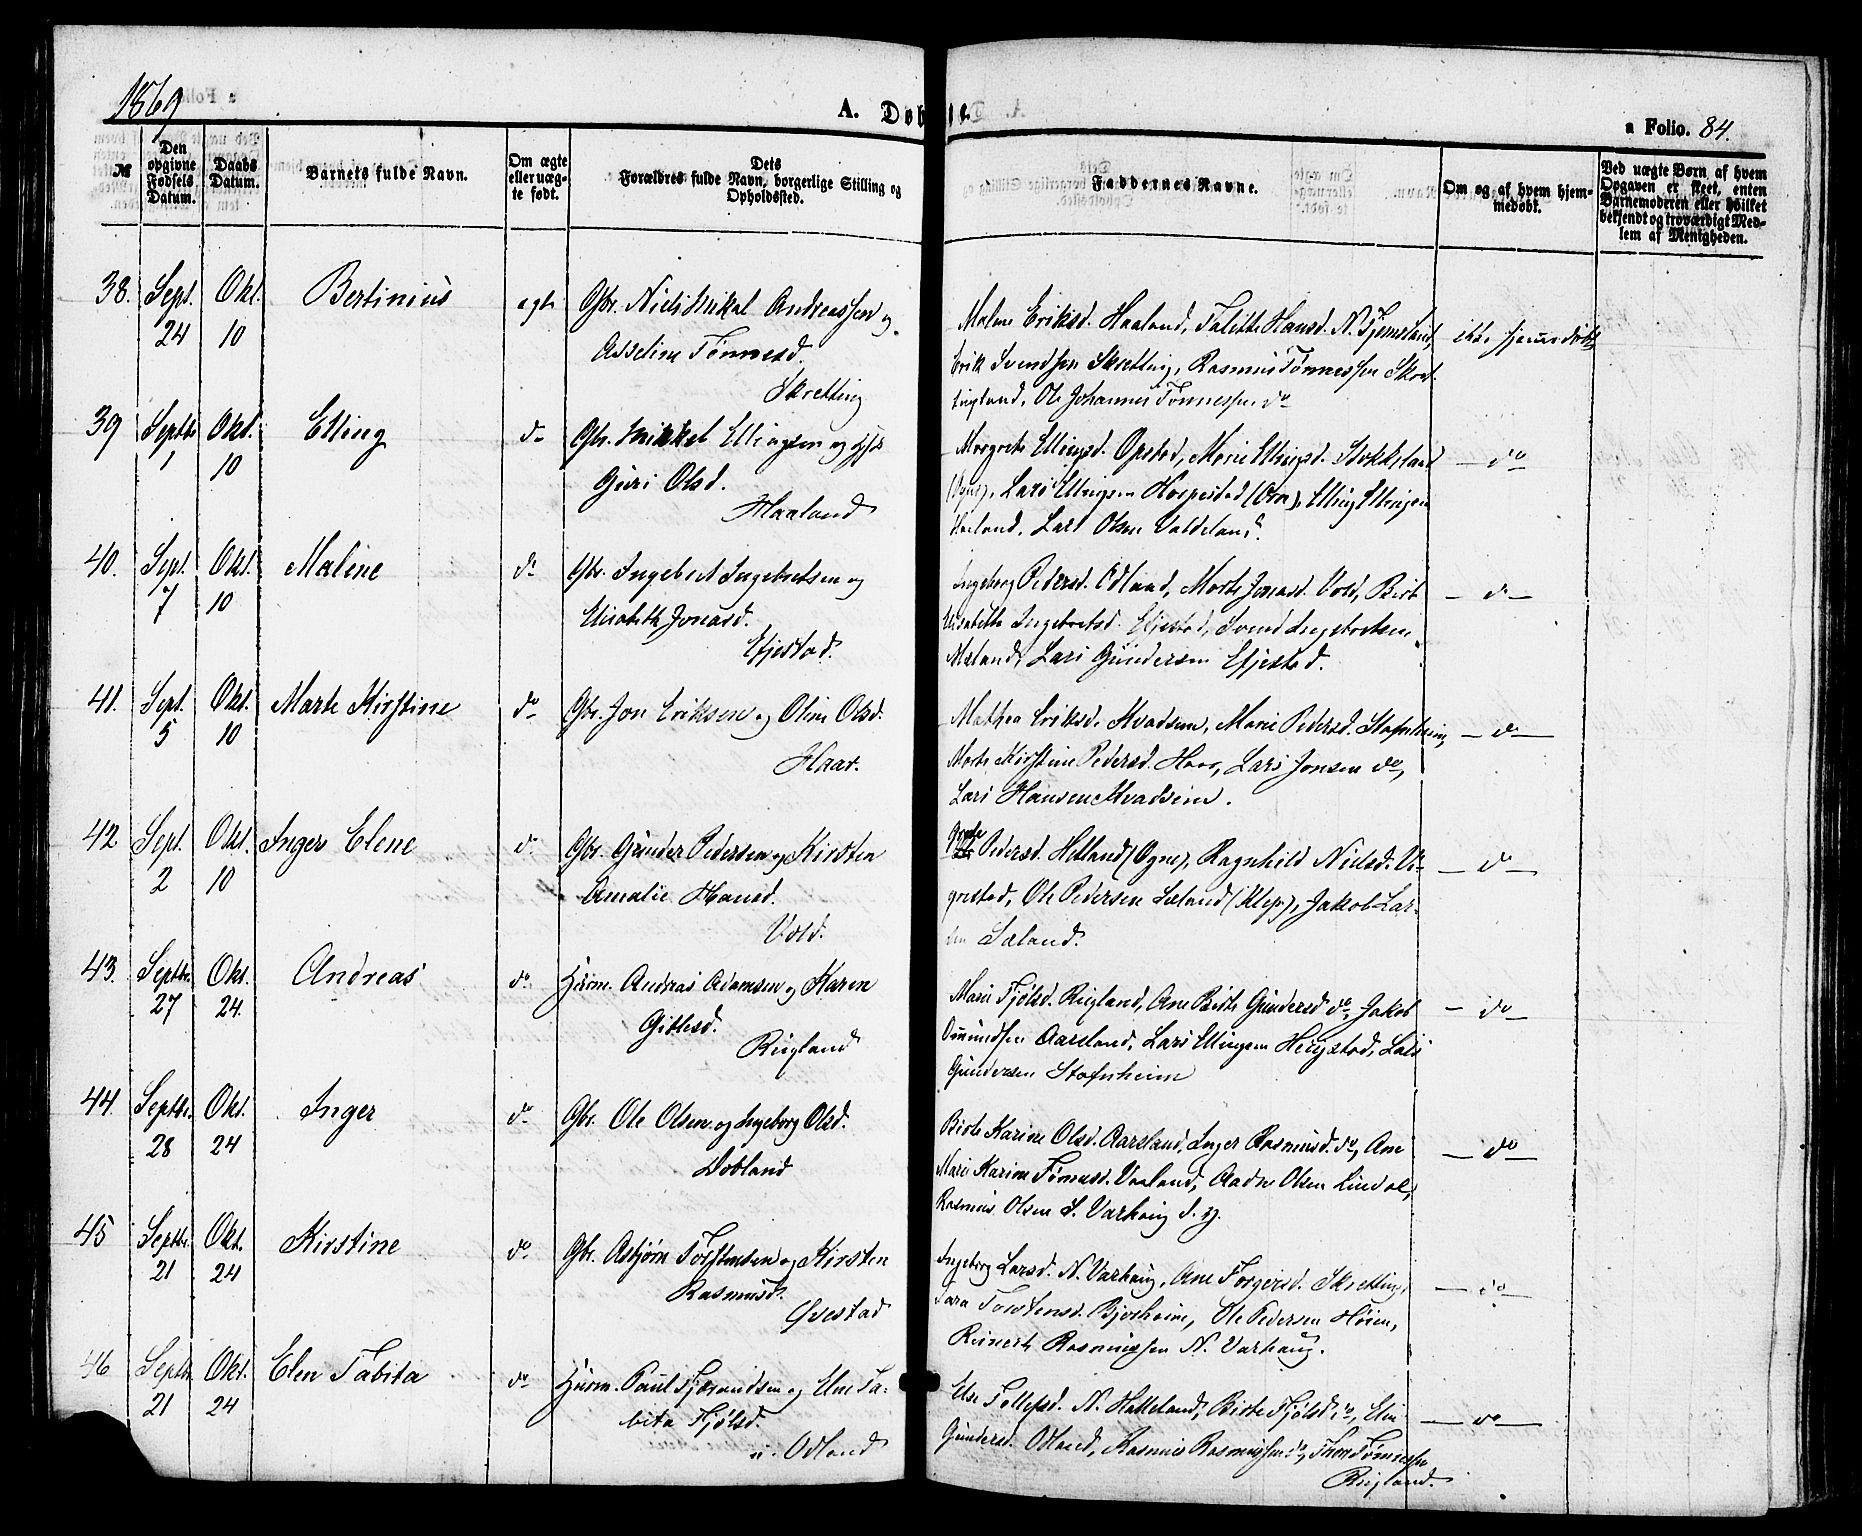 1869
A. Døb
te.
a Folio. 84.
№
Den opgivne Fødsels Datum.
Daabs Datum.
Barnets fulde Navn.
Om ægte eller uægte født.
Dets Forældres fulde Navn, borgerlige Stilling og Opholdssted.
Faddernes Navne.
Om og af hvem hjemmedøbt.
Ved uægte Børn af hvem Opgaven er skeet, enten Barnemoderen eller hvilket bekjendt og troværdigt Medlem af Menigheden.
38. Sept. 24 Okt. 10 Bertinius ægte Gbr. Niels Mikal Andreassen og
Asseline Tønnesd.
Skretting
Malene Eriksd. Haaland, Talette Hansd. N. Tjemsland, ikke hjemmedøbt
Erik Svendsen Skretting, Rasmus Tønnessen Skret-
tingland, Ole Johannes Tønnessen do
39 Septbr 1 Okt. 10 Elling do Gbr. Mikkel Ellingsen og
Guri Olsd.
Haaland
Margrete Ellingsd. Opstad, Marie Ellingsd. Stokkeland — do
(Ogne), Lars Ellingsen Horpestad (Orre), Elling Ellingsen
Haaland, Lars Olsen Valdeland.
40. Sept. 7 Okt. 10 Maline do Gbr. Ingebret Ingebretsen og
Elisabeth Jonasd.
Efjestad.
Ingeborg Pedersd. Odland, Marte Jonasd. Vold, Birt — do —
Elisabeth Ingebretsd. Efjestad, Svend Ingebretsen
Mæland, Lars Gundersen Efjestad.
41. Sept. 5 Okt. 10 Marte Kirstine do Gbr. Jon Eriksen og Oline Olsd.
Haar.
Mathea Eriksd. Kvadsem, Marie Pedersd. Stafnheim, — do —
Marte Kirstine Pedersd. Haar, Lars Jonsen do,
Lars Hansen Kvadseim.
42 Sept. 2 Okt. 10 Inger Elene do Gbr. Gunder Pedersen og Kirsten
Amalie Hansd.
Vold.
Pedersd. Hetland (Ogne), Ragnhild Nielsd. Vi- — do —
grestad, Ole Pedersen Læland (Klep), Jakob Lar-
sen Sæland.
43. Septbr. 27 Okt. 24. Andreas do Husm. Andreas Adamsen og Karen
Gitlesd.
Rugland
Marie Fjølsd. Rugland, Ane Birte Gundersd do, Jakob — do —
Omundsen Aarsland, Lars Ellingsen Hegstad, Lars
Gundersen Stafnheim
44. Septbr. 28 Okt. 24 Inger do Gbr. Ole Olsen og Ingeborg Olsd.
Dobland
Birte Karine Olsd. Aarsland, Inger Rasmusd. do, Ane — do —
Marie Karine Tønnesd. Varland, Aadne Olsen Lindal,
Rasmus Olsen S. Varhaug d. y.
45 Septbr. 21 Okt. 24 Kirstine do Gbr. Asbjørn Torstensen og Kirsten
Rasmusd.
Qvestad
Ingeborg Larsd. N. Varhaug, Ane Torgersd. Skretting, — do —
Sara Torstensd. Bjorheim, Ole Pedersen Høien,
Reinert Rasmussen N. Varhaug.
46 Septbr 21 Okt. 24 Elen Tabita do Husm. Paul Fjermundsen og Elen Ta-
bita Fjølsd.
u. Odland
Else Tollefsd. N. Hatteland, Birte Fjølsd do, Elen — do —
Gundersd. Odland, Rasmus Rasmussen do, Thore Tønnessen
Rugland.